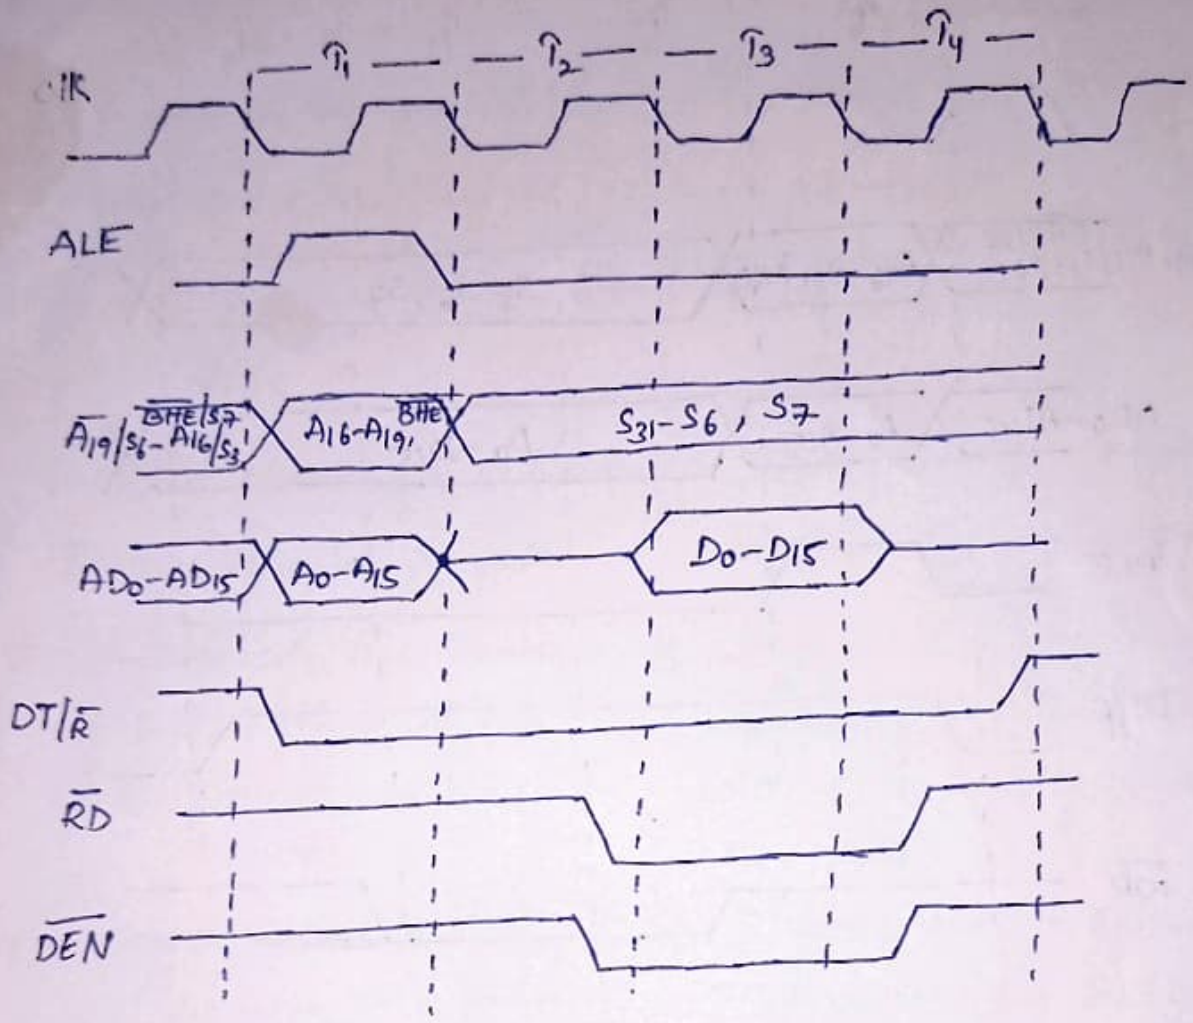 T1 T2 T3 T4
ALE
B̅H̅E̅/S7
A̅19/S6-A16/S3
A16-A19, B̅H̅E̅
S3-S6, S7
AD0-AD15
A0-A15
D0-D15
DT/R̅
R̅D̅
D̅E̅N̅